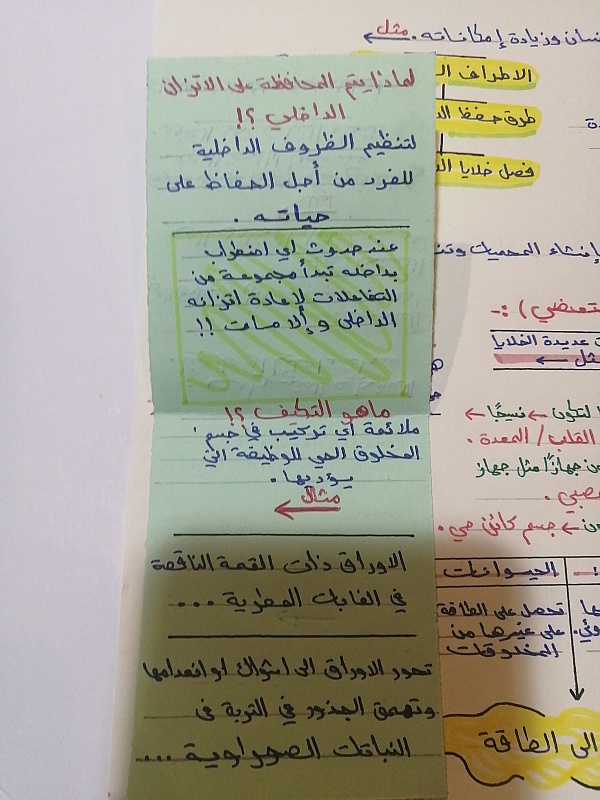 لماذا يتم المحافظة على الاتزان
الداخلي ؟!
لتنظيم الظروف الداخلية
للفرد من أجل الحفاظ على
حياته .
عند حدوث اي اضطراب
بداخله تبدأ مجموعة من
التفاعلات لإعادة اتزانه
الداخلي وإلا مات !!
ماهو التكيف ؟!
ملائمة أي تركيب في جسم
المخلوق الحي للوظيفة التي
يؤديها .
مثال
الاوراق ذات القمة الناقصة
في الغابات المطرية ...
تحور الاوراق الى اشواك او انعدامها
وتعمق الجذور في التربة في
النباتات الصحراوية ...
وزيادة إمكاناته . مثل
الاطراف
طرق حفظ
فصل خلايا
إنشاء المحميات
عديدة الخلايا
لتكون نسيجًا
القلب / المعدة .
جهازًا مثل جهاز
جسم كائن حي .
الحيوانات
تحصل على الطاقة
على غيرها من
المخلوقات
الى الطاقة